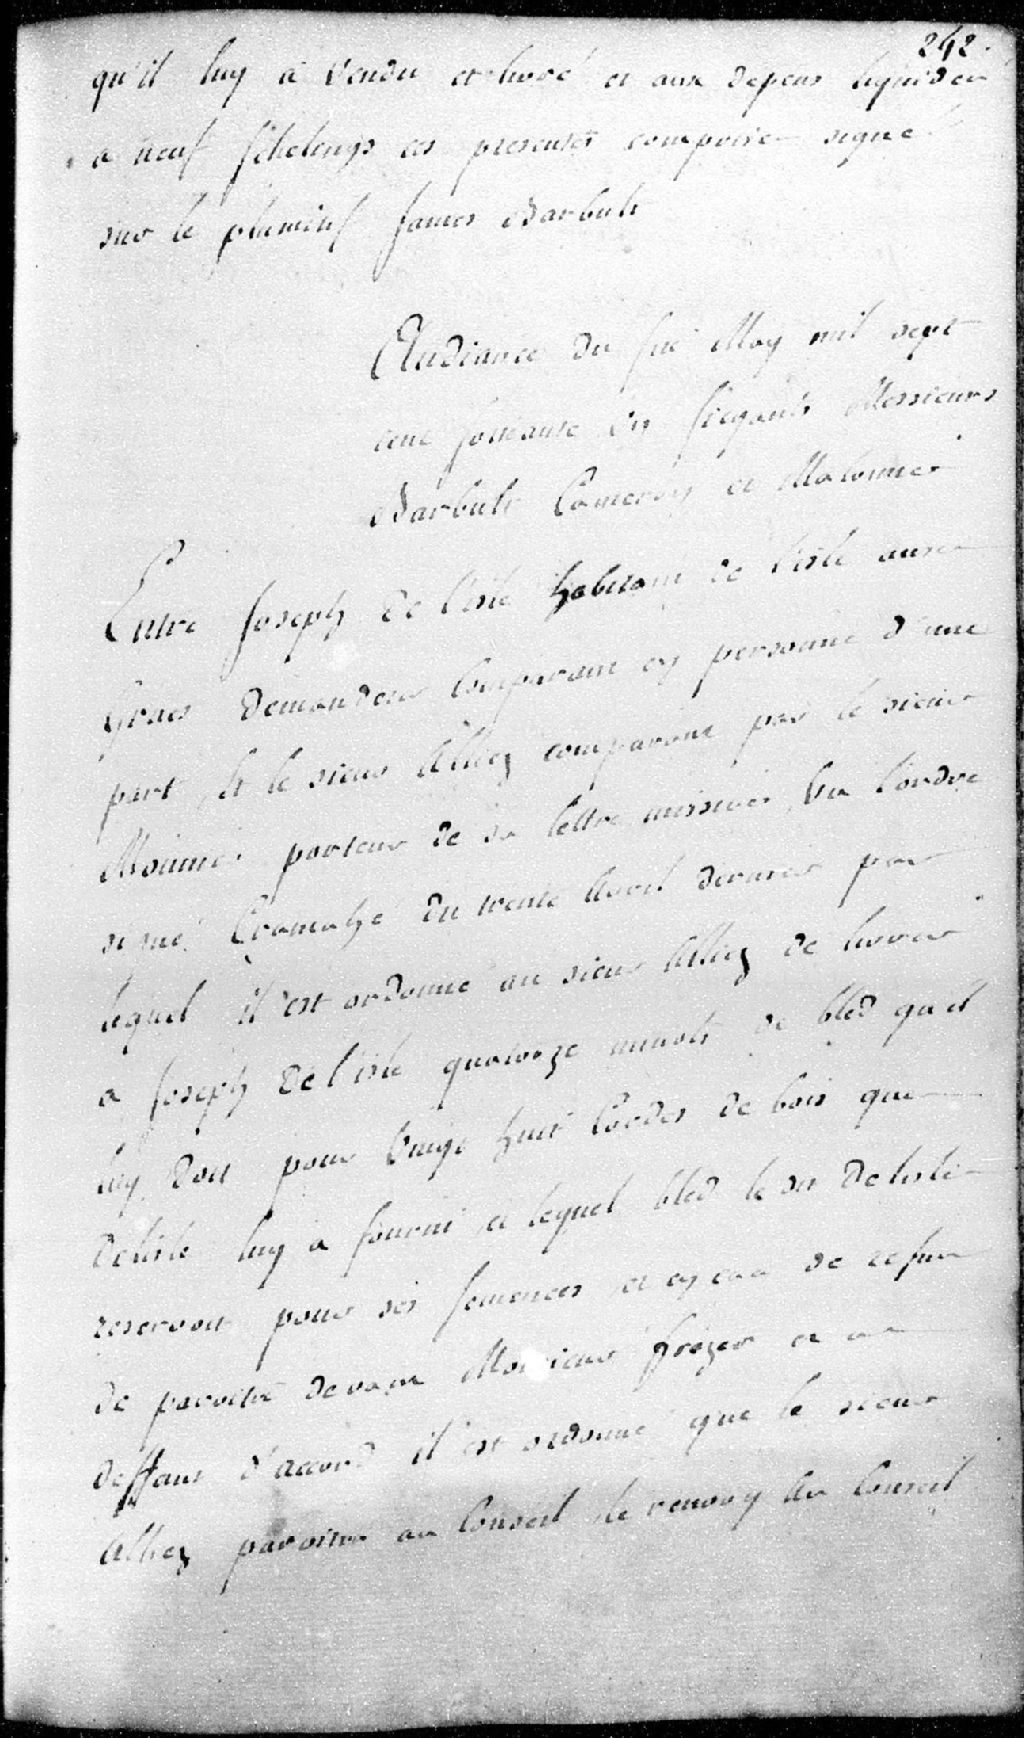 242.
qu'il luy a vendu et livré et aux depens liquidez
a neuf schelings ces presentes compris signé
sur le plumitif James Barbutt
Audiance du six May mil sept
cent soixante En siegants Messieurs
Barbutt Cameron et
Entre Joseph de l'isle habitant de l'isle aux
Grues demandeur Comparant en personne d'une
part, et le sieur Alliez comparant par le sieur
porteur de sa lettre missive, Vu l'ordre
signé Cramahé du trente Avril dernier par
lequel il est ordonné au sieur Alliez de livrer
a Joseph De l'isle quatorze minots de bled qu'il
luy doit pour Vingt huit Cordes de bois que
Delisle luy a fourni et lequel bled le dit Delisle
reservoit pour ses semences et en cas de refus
de paroitre devant Monsieur frézer et au
deffaut d'accord il est ordonné que le sieur
Alliez paroitra au Conseil le renvoy au Conseil